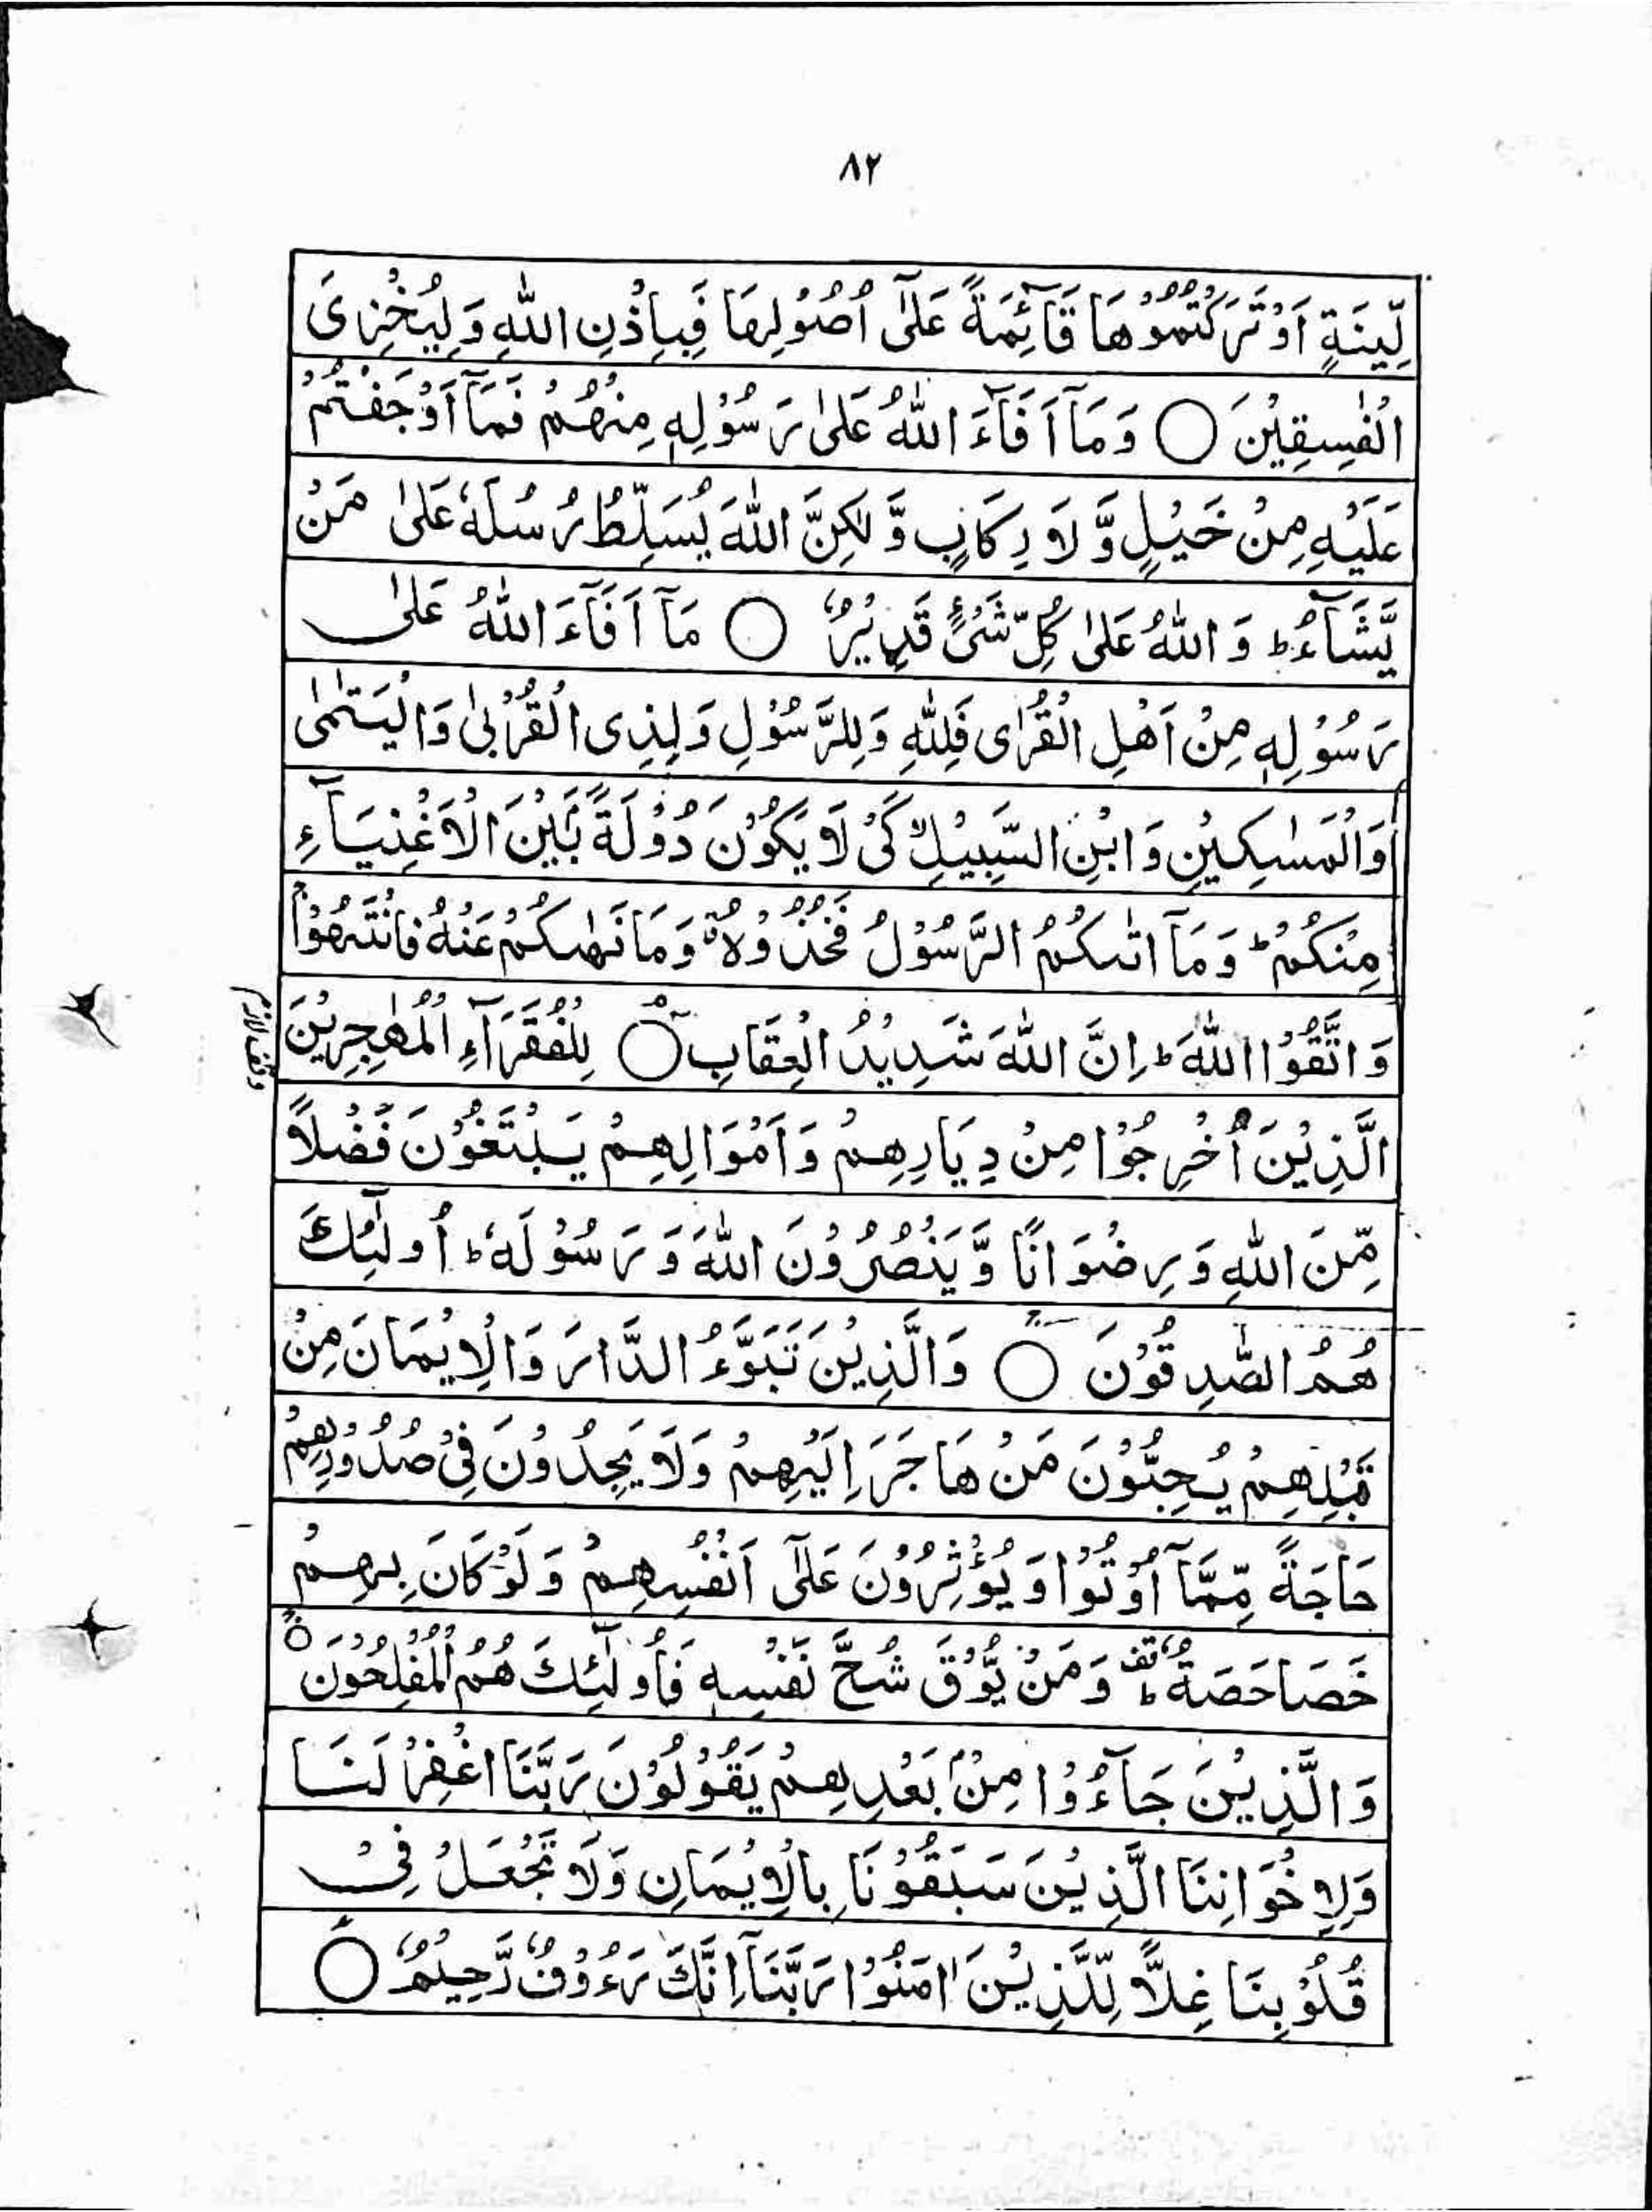 ٨٢
لِّيْنَةٍ اَوْ تَرَكْتُمُوْهَا قَآئِمَةً عَلٰٓى اُصُوْلِهَا فَبِاِذْنِ اللّٰهِ وَ لِيُخْزِىَ
الْفٰسِقِيْنَ ○ وَ مَآ اَ فَآءَ اللّٰهُ عَلٰى رَسُوْلِهٖ مِنْهُمْ فَمَآ اَوْجَفْتُمْ
عَلَيْهِ مِنْ خَيْلٍ وَّ لَا رِكَابٍ وَّ لٰكِنَّ اللّٰهَ يُسَلِّطُ رُسُلَهٗ عَلٰى مَنْ
يَّشَآءُ ؕ وَ اللّٰهُ عَلٰى كُلِّ شَىْءٍ قَدِيْرٌ ○ مَآ اَفَآءَ اللّٰهُ عَلٰى
رَسُوْلِهٖ مِنْ اَهْلِ الْقُرٰى فَلِلّٰهِ وَلِلرَّسُوْلِ وَلِذِى الْقُرْبٰى وَالْيَتٰمٰى
وَالْمَسٰكِيْنِ وَ ابْنِ السَّبِيْلِ ۙ كَىْ لَا يَكُوْنَ دُوْلَةًۢ بَيْنَ الْاَغْنِيَآءِ
مِنْكُمْ ؕ وَمَآ اٰتٰىكُمُ الرَّسُوْلُ فَخُذُوْهُ ۚ وَمَا نَهٰىكُمْ عَنْهُ فَانْتَهُوْا ۚ
وَ اتَّقُوْا اللّٰهَ ؕ اِنَّ اللّٰهَ شَدِيْدُ الْعِقَابِ ○ ۘ لِلْفُقَرَآءِ الْمُهٰجِرِيْنَ
وقف لازم
الَّذِيْنَ اُخْرِجُوْا مِنْ دِيَارِهِمْ وَ اَمْوَالِهِمْ يَبْتَغُوْنَ فَضْلًا
مِّنَ اللّٰهِ وَ رِضْوَانًا وَّ يَنْصُرُوْنَ اللّٰهَ وَ رَسُوْلَهٗ ؕ اُولٰٓئِكَ
هُمُ الصّٰدِقُوْنَ ○ وَالَّذِيْنَ تَبَوَّءُ الدَّارَ وَالْاِيْمَانَ مِنْ
قَبْلِهِمْ يُحِبُّوْنَ مَنْ هَاجَرَ اِلَيْهِمْ وَلَا يَجِدُوْنَ فِىْ صُدُوْرِهِمْ
حَاجَةً مِّمَّآ اُوْتُوْا وَ يُؤْثِرُوْنَ عَلٰٓى اَنْفُسِهِمْ وَ لَوْ كَانَ بِهِمْ
خَصَاحَصَةٌ ؕ قف وَمَنْ يُّوْقَ شُحَّ نَفْسِهٖ فَاُولٰٓئِكَ هُمُ الْمُفْلِحُوْنَ ○ ۚ
وَالَّذِيْنَ جَآءُوْا مِنْۢ بَعْدِهِمْ يَقُوْلُوْنَ رَبَّنَا اغْفِرْ لَنَا
وَلِاِخْوَانِنَا الَّذِيْنَ سَبَقُوْنَا بِالْاِيْمَانِ وَلَا تَجْعَلْ فِىْ
قُلُوْبِنَا غِلًّا لِّلَّذِيْنَ اٰمَنُوْا رَبَّنَآ اِنَّكَ رَءُوْفٌ رَّحِيْمٌ ○